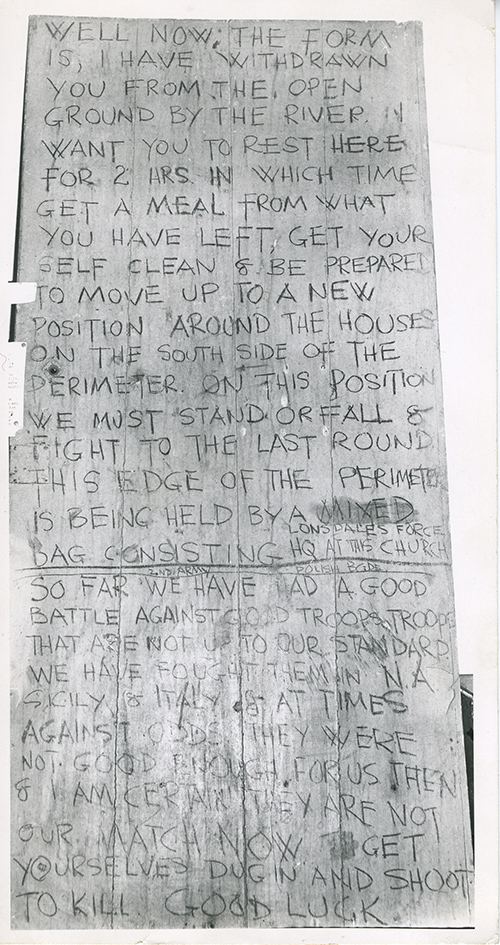 WELL NOW. THE FORM
IS, I HAVE WITHDRAWN
YOU FROM THE OPEN
GROUND BY THE RIVER. I
WANT YOU TO REST HERE
FOR 2 HRS IN WHICH TIME
GET A MEAL FROM WHAT
YOU HAVE LEFT, GET YOUR
SELF CLEAN & BE PREPARED
TO MOVE UP TO A NEW
POSITION AROUND THE HOUSES
ON THE SOUTH SIDE OF THE
PERIMETER. ON THIS POSITION
WE MUST STAND OR FALL &
FIGHT TO THE LAST ROUND
THIS EDGE OF THE PERIMETER
IS BEING HELD BY A MIXED
LONSDALES FORCE
BAG CONSISTING HQ AT THIS CHURCH
2ND ARMY POLISH BGDE
SO FAR WE HAVE HAD A GOOD
BATTLE AGAINST GOOD TROOPS, TROOPS
THAT ARE NOT UP TO OUR STANDARD
WE HAVE FOUGHT THEM IN N.A
SICILY, & ITALY & AT TIMES
AGAINST ODDS. THEY WERE
NOT GOOD ENOUGH FOR US THEN
& I AM CERTAIN THEY ARE NOT
OUR MATCH NOW GET
YOURSELVES DUG IN AND SHOOT
TO KILL. GOOD LUCK